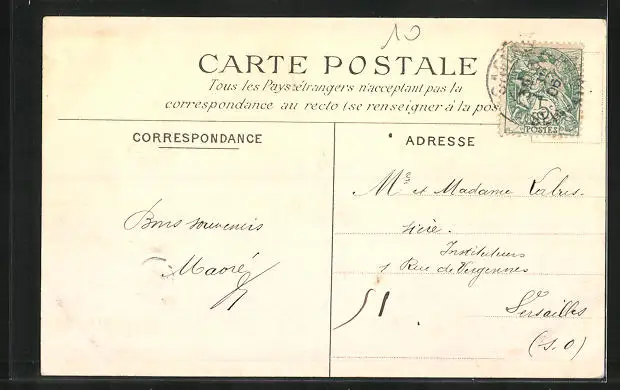 10
CARTE POSTALE
Tous les Pays étrangers n'acceptant pas la
correspondance au recto (se renseigner à la pos
POSTES
CORRESPONDANCE
ADRESSE
Mr et Madame
Instituteurs
1 Rue de Vergennes
Versailles
(S.O)
Bons souvenirs
51